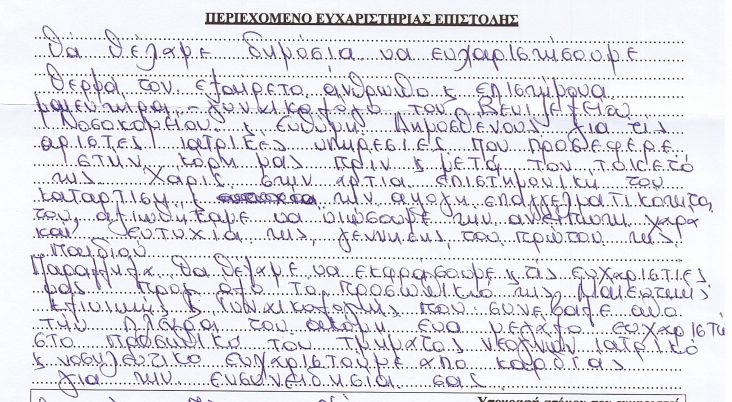 ΠΕΡΙΕΧΟΜΕΝΟ ΕΥΧΑΡΙΣΤΗΡΙΑΣ ΕΠΙΣΤΟΛΗΣ
Θα θέλαμε δημόσια να ευχαριστήσουμε
θερμά τον εξαίρετο άνθρωπο κ επιστήμονα
μαιευτήρα - γυναικολόγο του Βενιζελείου
Νοσοκομείου κ. Ευθύμη Δημοσθένους για τις
άριστες ιατρικές υπηρεσίες που προσέφερε
στην κόρη μας πριν κ μετά τον τοκετό
της. Χάρις στην άρτια επιστημονική του
κατάρτιση κ την επαγγελματικότητα
του, αξιωθήκαμε να νιώσουμε την ανείπωτη χαρά
και ευτυχία της γέννησης του πρώτου της
παιδιού
Παράλληλα θα θέλαμε να εκφράσουμε κ τις ευχαριστίες
μας προς όλο το προσωπικό της Μαιευτικής
κλινικής κ γυναικολογικής που συνέβαλε από
την πλευρά του ακόμη ένα μεγάλο ευχαριστώ
στο προσωπικό του τμήματος νεογνών ιατρικό
κ νοσηλευτικό ευχαριστούμε από καρδιάς
για την ευσυνειδησία σας.